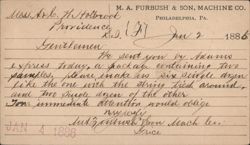 M. A. FURBUSH & SON, MACHINE CO.
PHILADELPHIA, PA.
Jan 2 1888
Mess A & C W Holbrook
Providence
Gentlemen
We sent you by Adams
express today a package containing two
samples, please make us six single dozen
like the one with the string tied around,
and two single dozen of the other
Your immediate attention would oblige
M A Furbush & Son Mach Co
JAN 4 1888